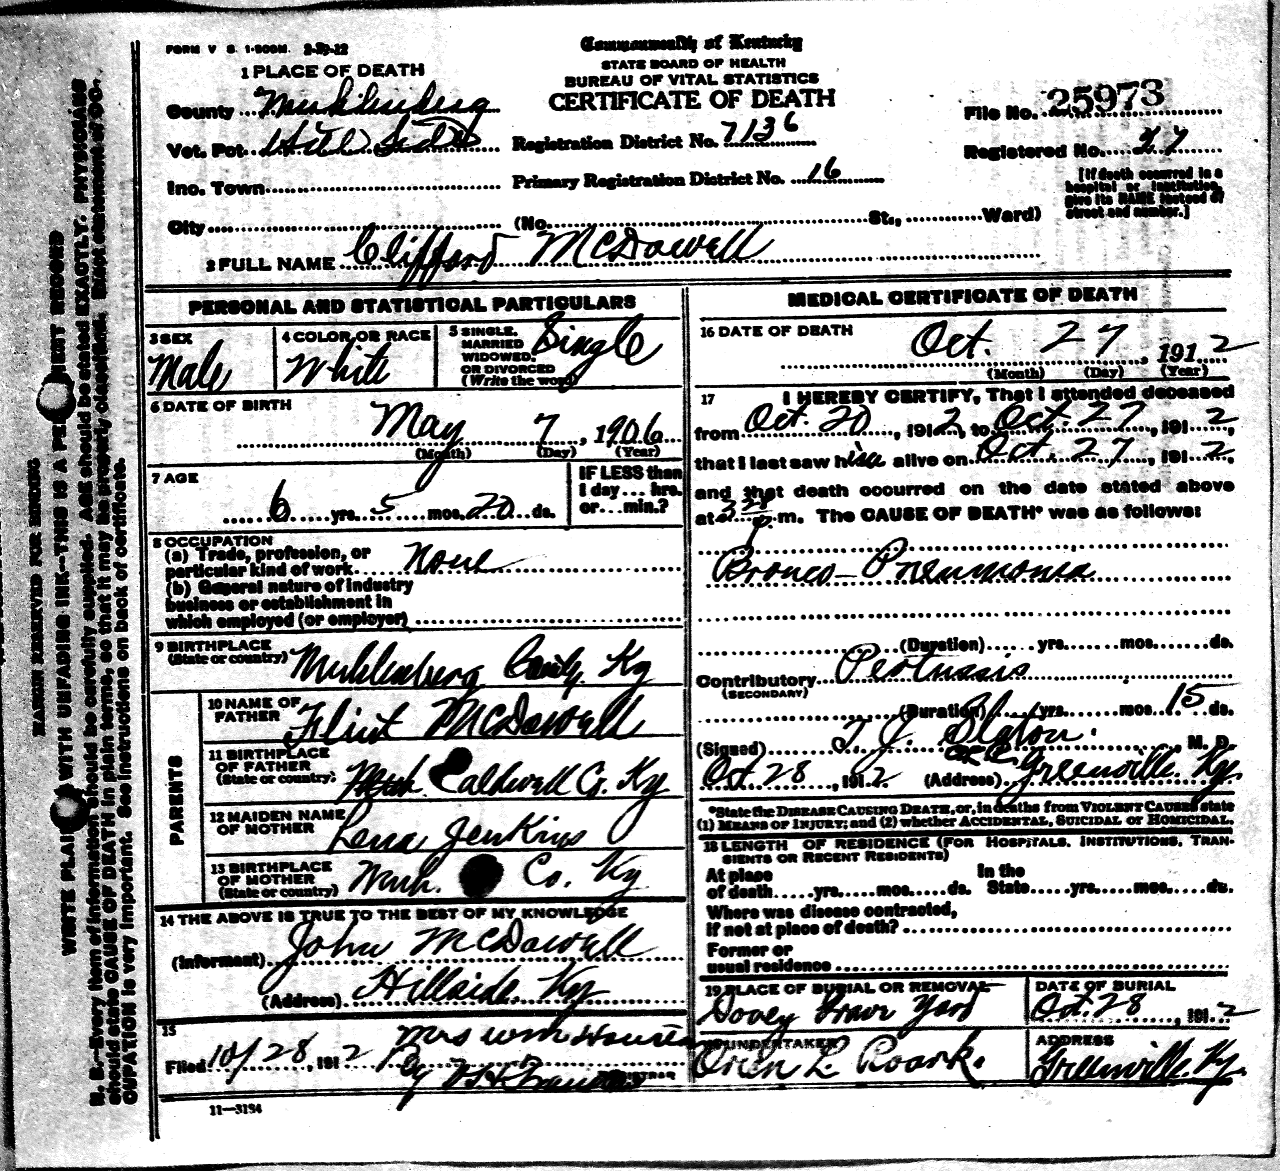 FORM V S. 1-500M. 2-29-12
Commonwealth of Kentucky
STATE BOARD OF HEALTH
BUREAU OF VITAL STATISTICS
CERTIFICATE OF DEATH
1 PLACE OF DEATH
County Muhlenberg
Vot. Pct.
Inc. Town
City (No. St., Ward)
Registration District No. 7136
Primary Registration District No. 16
File No. 25973
Registered No. 47
[If death occurred in a
hospital or institution,
give its NAME instead of
street and number.]
2 FULL NAME Clifford McDowell
PERSONAL AND STATISTICAL PARTICULARS
3 SEX
Male
4 COLOR OR RACE
White
5 SINGLE,
MARRIED
WIDOWED,
OR DIVORCED
(Write the word)
Single
6 DATE OF BIRTH
May 7, 1906
(Month) (Day) (Year)
7 AGE
6 yrs. 5 mos. 20 ds.
IF LESS than
1 day ... hrs.
or ... min.?
8 OCCUPATION
(a) Trade, profession, or
particular kind of work None
(b) General nature of industry
business or establishment in
which employed (or employer)
9 BIRTHPLACE
(State or country) Muhlenberg County Ky
PARENTS
10 NAME OF
FATHER Flint McDowell
11 BIRTHPLACE
OF FATHER
(State or country) Muh. Caldwell Co. Ky
12 MAIDEN NAME
OF MOTHER Lena Jenkins
13 BIRTHPLACE
OF MOTHER
(State or country) Muh. Co. Ky
14 THE ABOVE IS TRUE TO THE BEST OF MY KNOWLEDGE
(Informant) John McDowell
(Address) Hillside Ky
15
Filed 10/28, 1912 Mrs Wm
By
REGISTRAR
11—3194
MEDICAL CERTIFICATE OF DEATH
16 DATE OF DEATH
Oct. 27, 1912
(Month) (Day) (Year)
17 I HEREBY CERTIFY, That I attended deceased
from Oct. 20, 1912, to Oct. 27, 1912,
that I last saw him alive on Oct. 27, 1912,
and that death occurred on the date stated above
at 3 30 p m. The CAUSE OF DEATH* was as follows:
Bronco-Pneumonia
(Duration) yrs. mos. ds.
Contributory Pertussis
(SECONDARY)
(Duration) yrs. mos. 15 ds.
(Signed) T. J. Slaton, M. D.
Oct. 28, 1912 (Address) Greenville Ky.
*State the DISEASE CAUSING DEATH, or, in deaths from VIOLENT CAUSES state
(1) MEANS OF INJURY; and (2) whether ACCIDENTAL, SUICIDAL OR HOMICIDAL.
18 LENGTH OF RESIDENCE (FOR HOSPITALS, INSTITUTIONS, TRAN-
SIENTS OR RECENT RESIDENTS)
At place In the
of death yrs. mos. ds. State yrs. mos. ds.
Where was disease contracted,
if not at place of death?
Former or
usual residence
19 PLACE OF BURIAL OR REMOVAL
Dovey Grave Yard
DATE OF BURIAL
Oct. 28, 1912
20 UNDERTAKER
Orien L Roark.
ADDRESS
Greenville Ky.
MARGIN RESERVED FOR BINDING
WRITE PLAINLY WITH UNFADING INK—THIS IS A PERMANENT RECORD
N. B.—Every item of information should be carefully supplied. AGE should be stated EXACTLY. PHYSICIANS
should state CAUSE OF DEATH in plain terms, so that it may be properly classified. Exact statement of OC-
CUPATION is very important. See instructions on back of certificate.